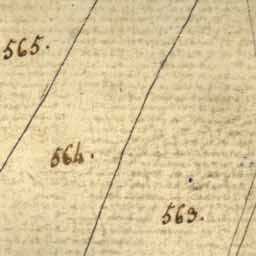 565.
564.
563.